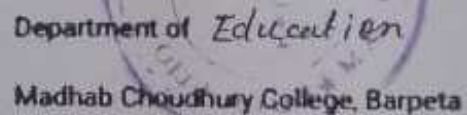 Department of Education
Madhab Choudhury College, Barpeta